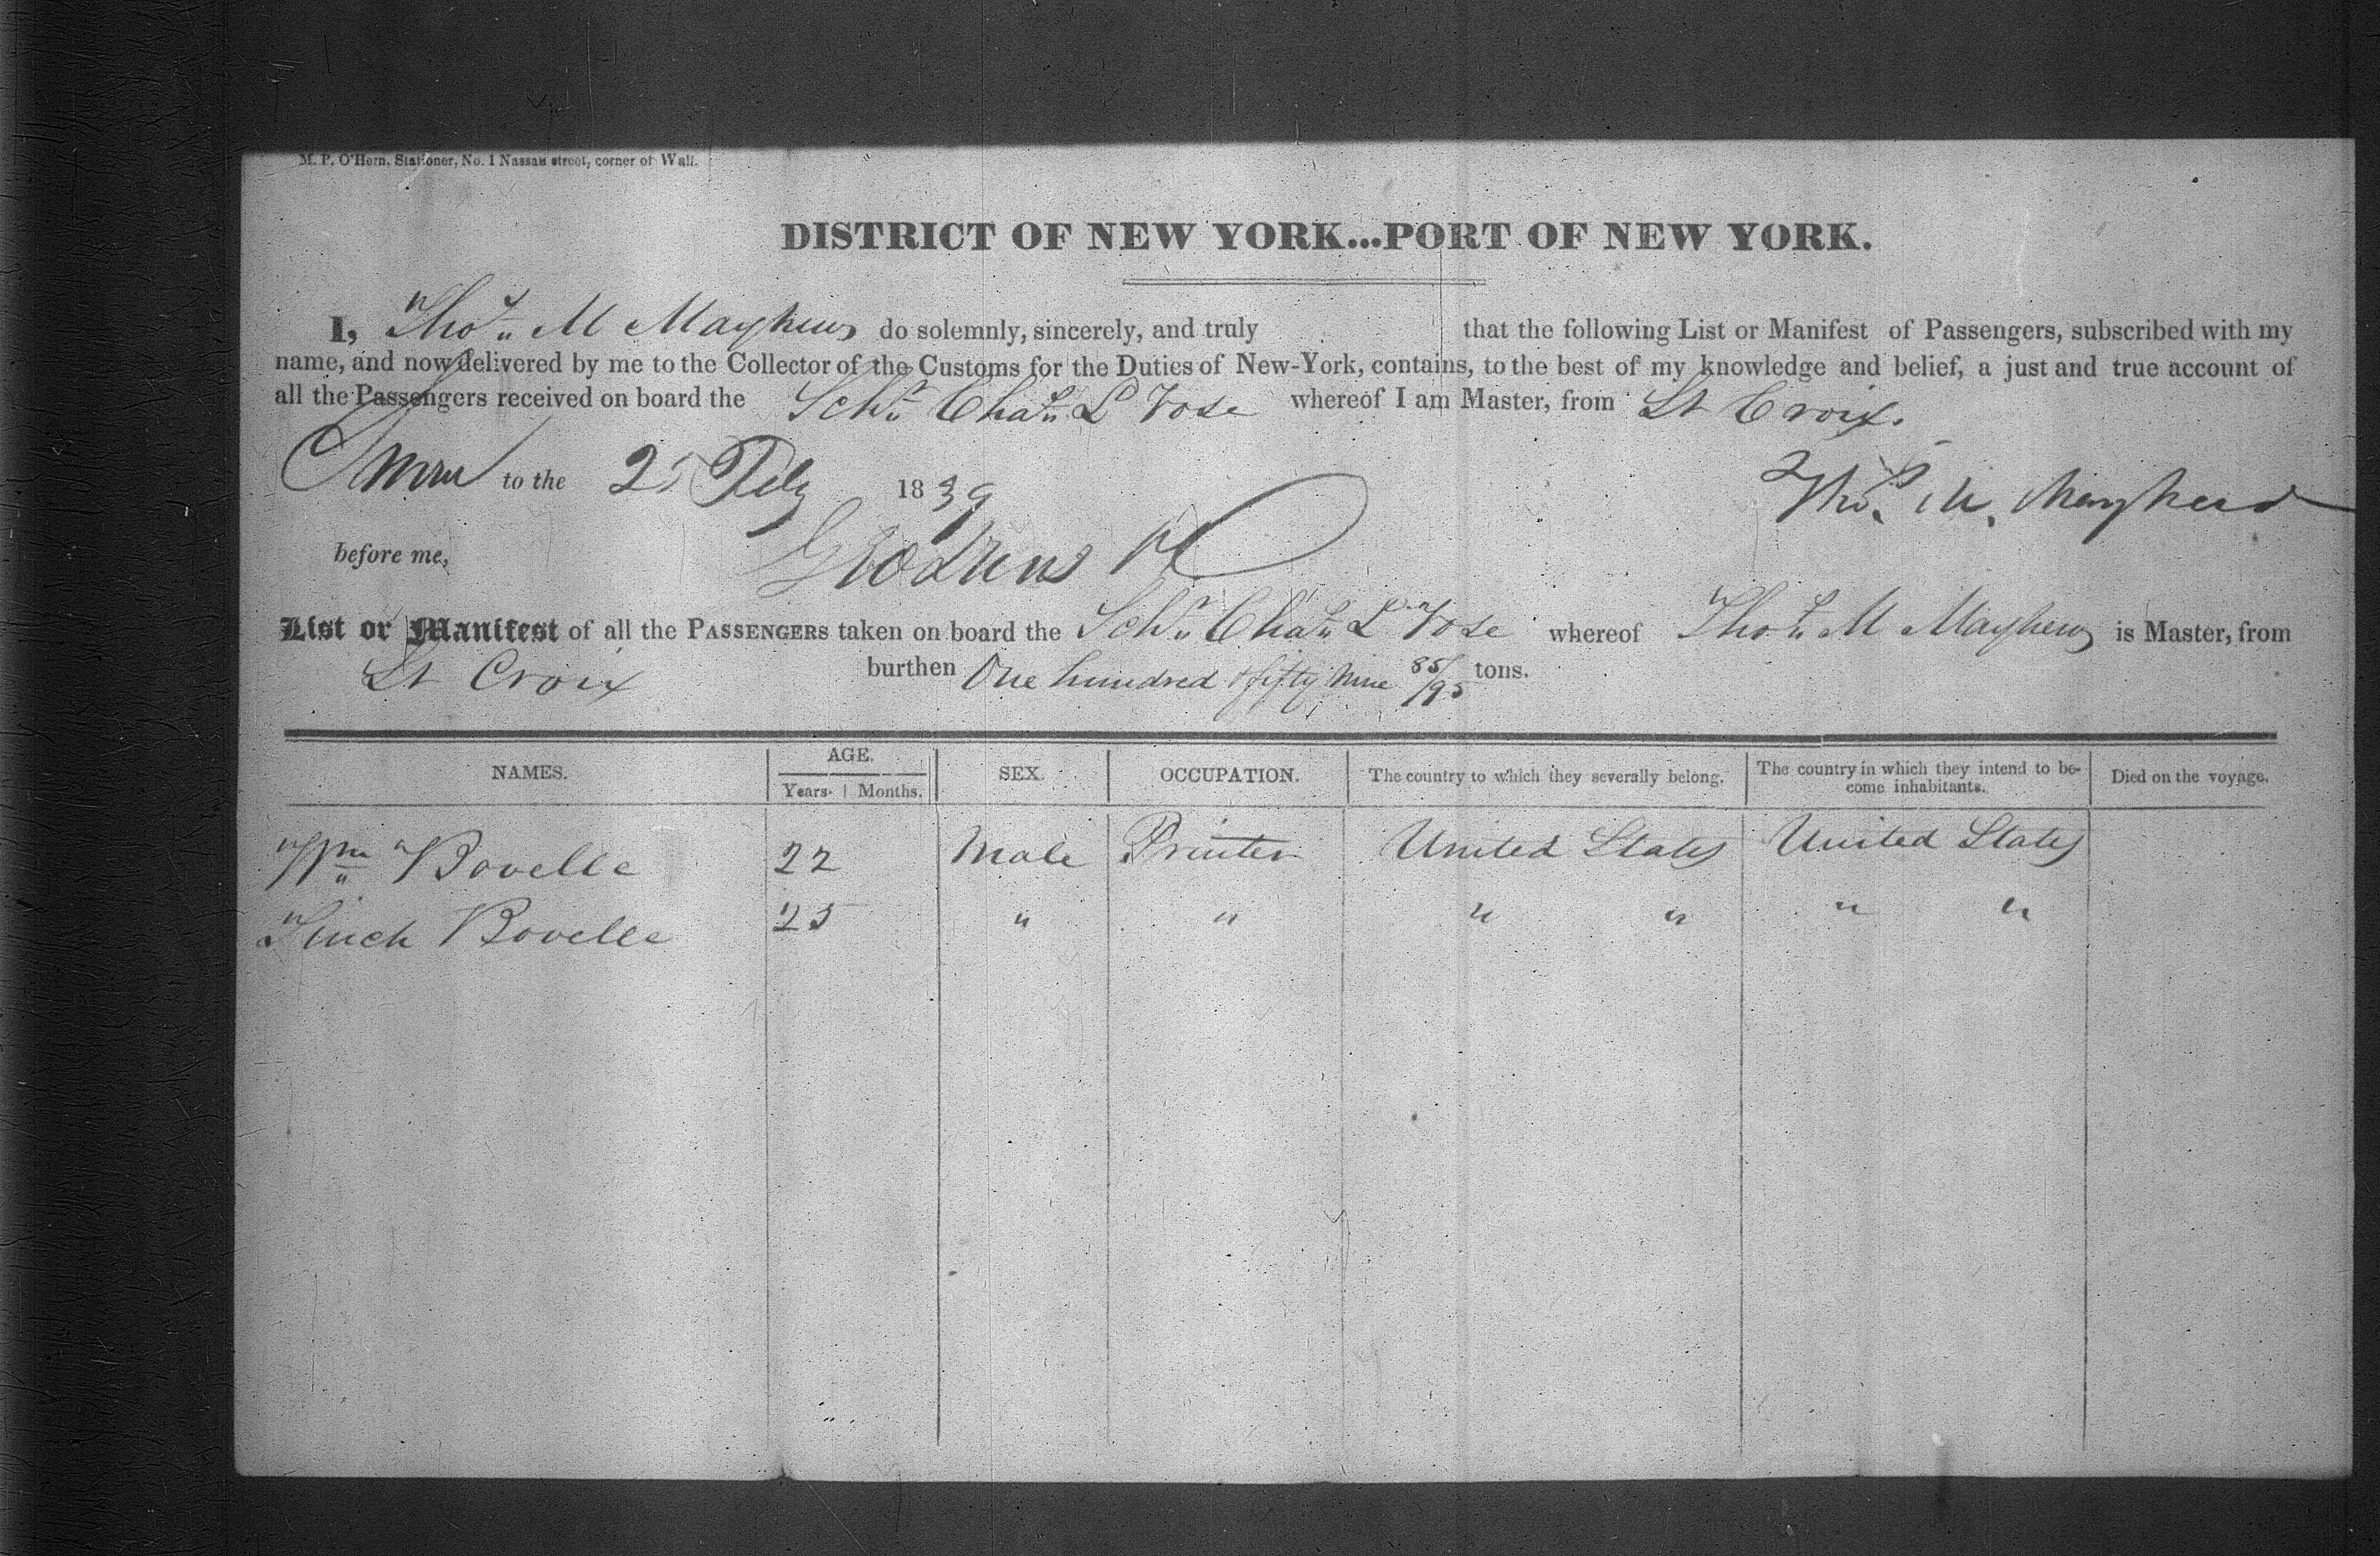 M. P. O'Hern, Stationer, No. 1 Nassau street, corner of Wall.
DISTRICT OF NEW YORK...PORT OF NEW YORK.
I, Thos M Mayhew do solemnly, sincerely, and truly that the following List or Manifest of Passengers, subscribed with my
name, and now delivered by me to the Collector of the Customs for the Duties of New-York, contains, to the best of my knowledge and belief, a just and true account of
all the Passengers received on board the Schr Chas L Vose whereof I am Master, from St Croix.
Sworn to the 25 Feby 1839 Thos. M. Mayhew
before me,
List or Manifest of all the PASSENGERS taken on board the Schr Chas L Vose whereof Thos M Mayhew is Master, from
St Croix burthen One hundred & fifty Nine 85/95 tons.
NAMES. AGE. SEX. OCCUPATION. The country to which they severally belong. The country in which they intend to be-
come inhabitants. Died on the voyage.
Years. Months.
Wm Bovelle 22 Male Printer United States United States
Bovelle 25 " " " " " "